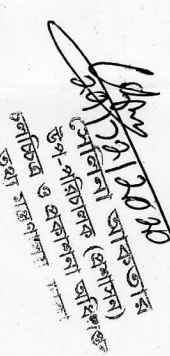 ২১/১২/2020
সেলিনা আকতার
উপ-পরিচালক (প্রশাসন)
চলচ্চিত্র ও প্রকাশনা অধিদপ্তর
তথ্য